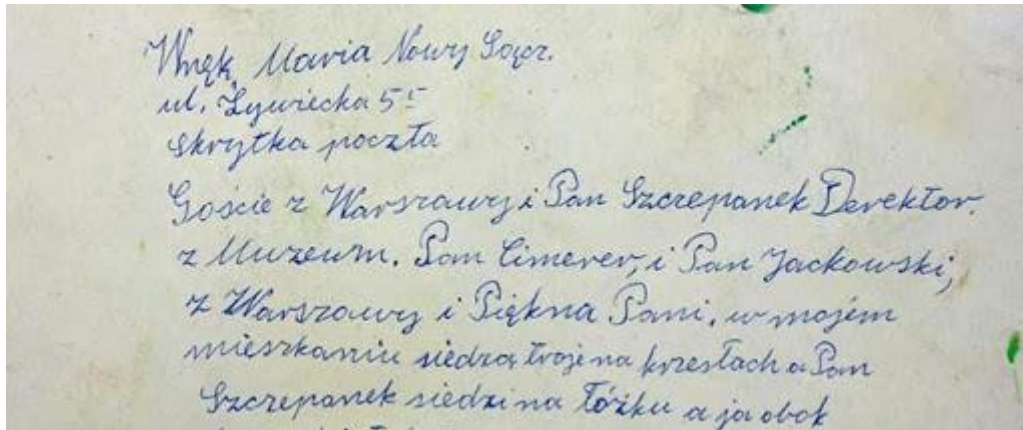 Wnęk Maria Nowy Sącz.
ul. Żywiecka 55
skrytka poczta
Goście z Warszawy i Pan Szczepanek Derektor.
z Muzeum. Pan Cimerer, i Pan Jackowski,
z Warszawy i Piękna Pani. w mojém
mieszkaniu siedzą troje na krzesłach a Pan
Szczepanek siedzi na łóżku a ja obok